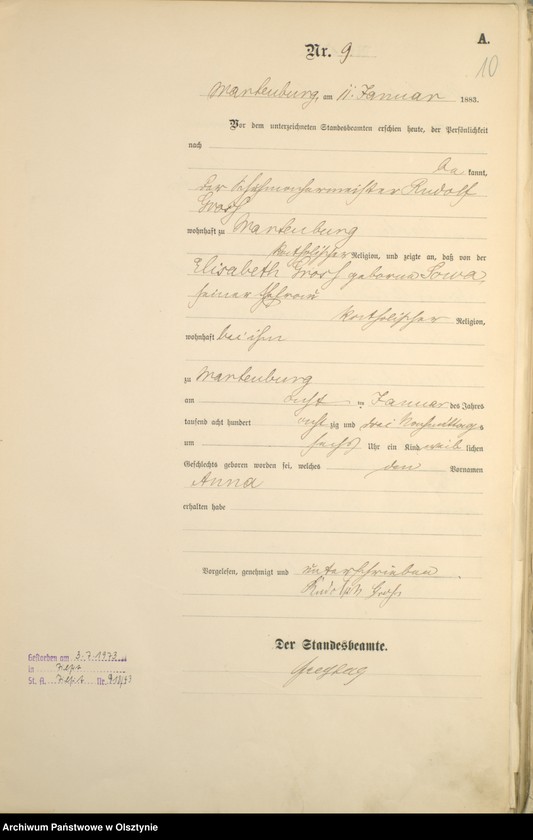 A.
Nr. 9.
10
Wartenburg, am 11. Januar 1883.
Vor dem unterzeichneten Standesbeamten erschien heute, der Persönlichkeit
nach
be kannt,
der Schuhmachermeister Rudolf
wohnhaft zu Wartenburg
katholischer Religion, und zeigte an, daß von der
Elisabeth geborene Sowa,
seiner Ehefrau
katholischer Religion,
wohnhaft bei ihm
zu Wartenburg
am acht ten Januar des Jahres
tausend acht hundert acht zig und drei Nachmittags
um sechs Uhr ein Kind weib lichen
Geschlechts geboren worden sei, welches den Vornamen
Anna
erhalten habe
Vorgelesen, genehmigt und unterschrieben
Der Standesbeamte.
Gestorben am 3.7.1973
in
St. A. Nr.
Archiwum Państwowe w Olsztynie